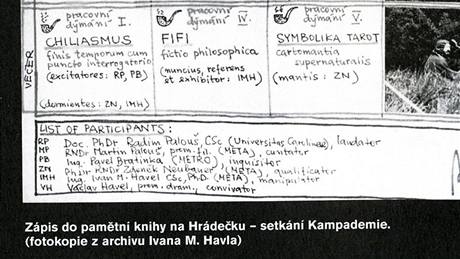 pracovní dýmání I.
CHILIASMUS
finis temporum cum
puncto interrogatio
(excitatores: RP, PB)
(dormientes: ZN, IMH)
pracovní dýmání IV.
FIFI
fictio philosophica
(nuncius, referens
et exhibitor: IMH)
pracovní dýmání V.
SYMBOLIKA TAROT
cartomantia
supernaturalis
(mantis: ZN)
VEČER
LIST OF PARTICIPANTS:
RP Doc. PhDr Radim Palouš, CSc (Universitas Carolinae), laudator
MP RNDr Martin Palouš, prom. fil. (META), cunctator
PB Ing. Pavel Bratinka (METRO), inquisitor
ZN PhDr RNDr Zdeněk Neubauer (META), qualificator
IMH Ing. Ivan M. Havel CSc, PhD. (META), manipulator
VH Václav Havel, prom. dram., convivator
Zápis do pamětní knihy na Hrádečku – setkání Kampademie.
(fotokopie z archivu Ivana M. Havla)